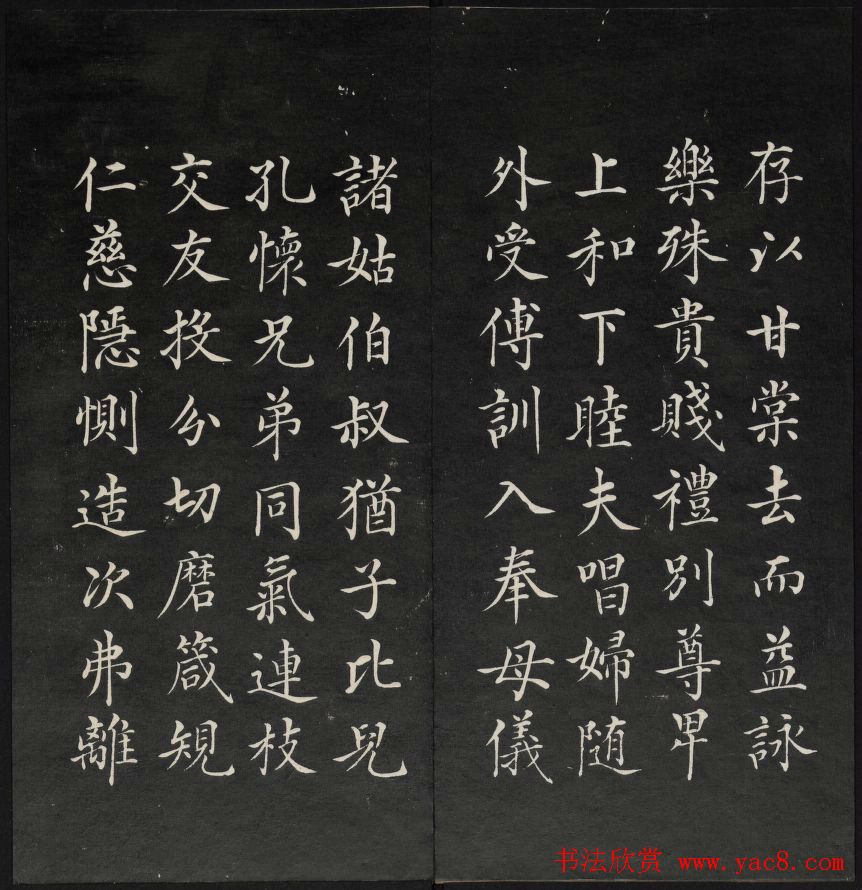 存以甘棠去而益詠
樂殊貴賤禮別尊卑
上和下睦夫唱婦随
外受傅訓入奉母儀
諸姑伯叔猶子比兒
孔懷兄弟同氣連枝
交友投分切磨箴規
仁慈隱惻造次弗離
书法欣赏 www.yac8.com